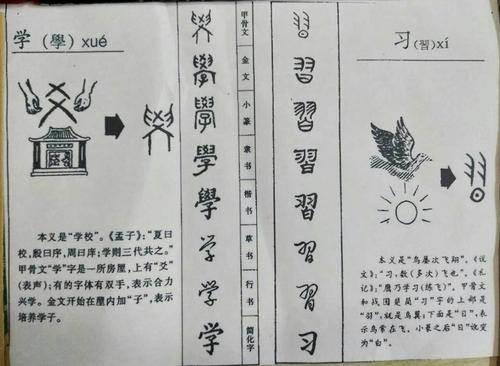 学 (學) xué
本义是“学校”。《孟子》：“夏曰
校，殷曰序，周曰庠；学则三代共之。”
甲骨文“学”字是一所房屋，上有“爻”
(表声)；有的字体有双手，表示合力
兴学。金文开始在屋内加“子”，表示
培养学子。
學
學
學
學
學
学
学
学
甲骨文
金文
小篆
隶书
楷书
草书
行书
简化字
習
習
習
習
習
習
習
习
习(習)xí
本义是“鸟屡次飞翔”。《说
文》：“习，数(多次)飞也”。《礼
记》：“鹰乃学习(练飞)”。甲骨文
和战国楚简“习”字的上部是
“羽”，就是鸟翼；下面是“日”，表
示鸟常在飞。小篆之后“日”讹变
为“白”。